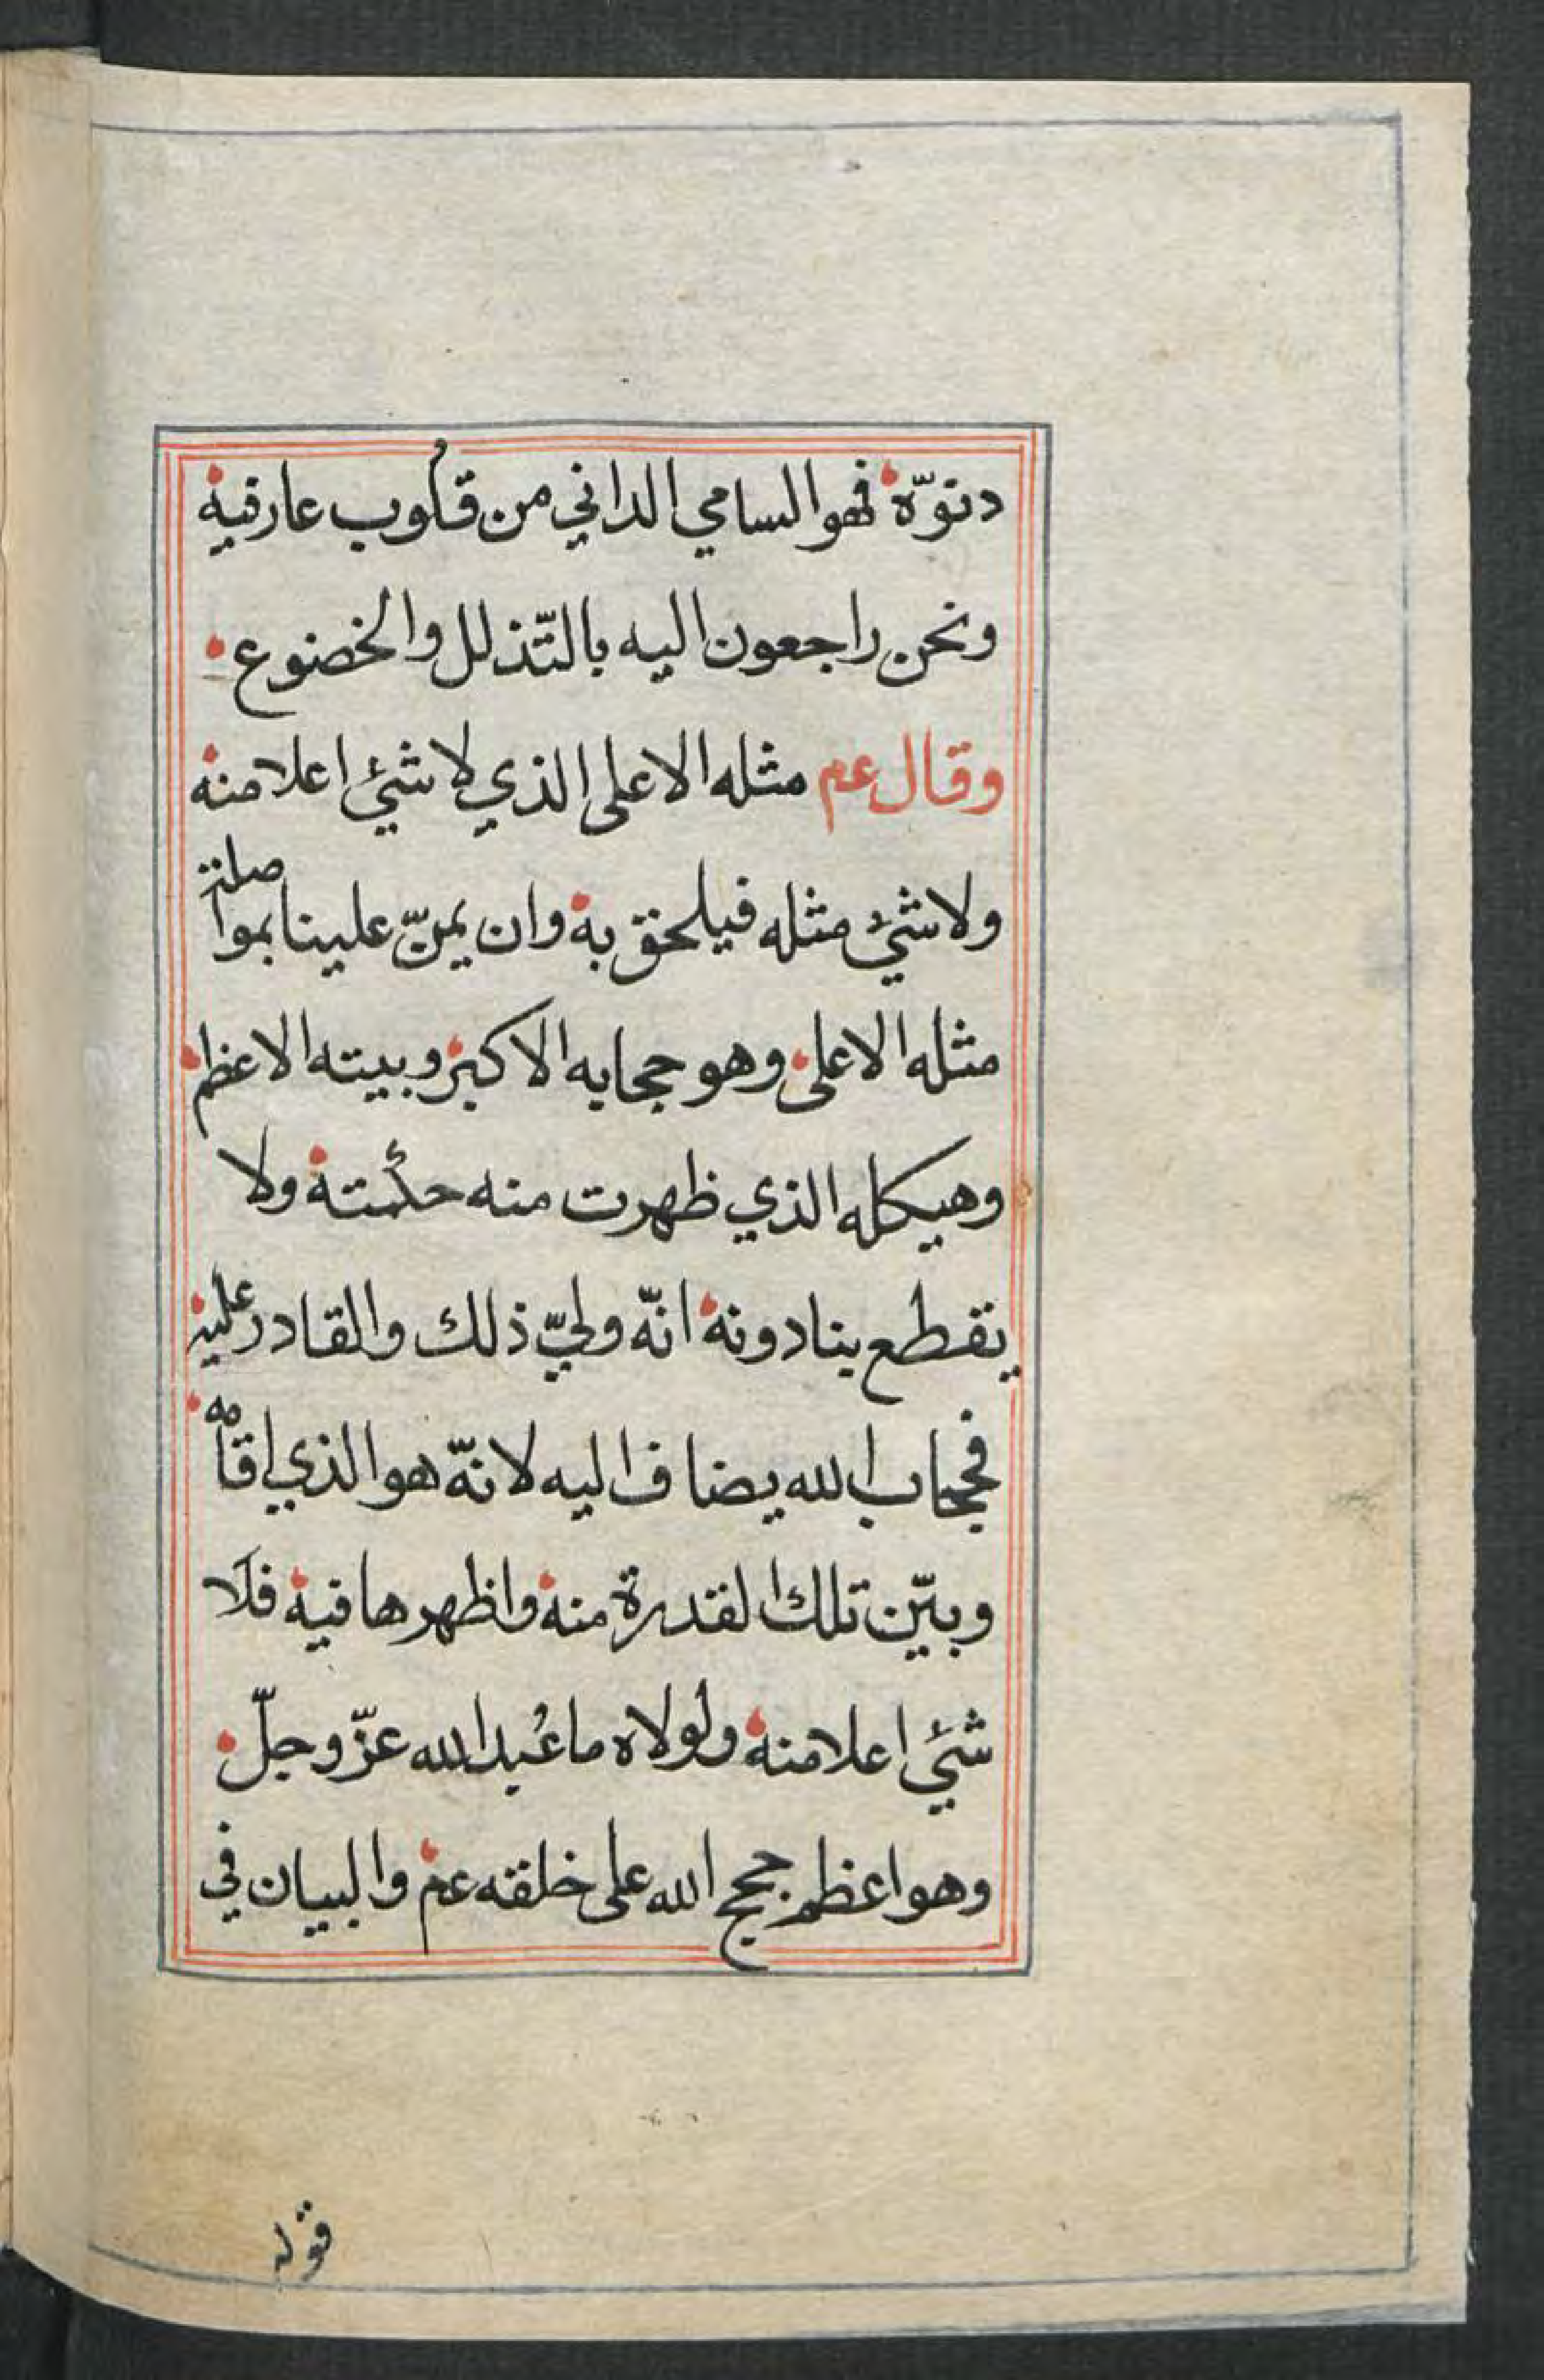 دنوّه فهو السامي الداني من قلوب عارفيه
ونحن راجعون اليه بالتّذلل والخضوع
وقال عم مثله الاعلى الذي لا شئ اعلا منه
ولا شئ مثله فيلحق به وان يمنّ علينا بمواصلة
مثله الاعلى وهو حجابه الاكبر وبيته الاعظم
وهيكله الذي ظهرت منه حكمته ولا
يقطع بنا دونه انّه وليّ ذلك والقادر عليه
فحجاب الله يضاف اليه لانّه هو الذي اقامه
وبيّن تلك القدرة منه واظهرها فيه فلا
شئ اعلا منه ولولاه ما عُبد الله عزّ وجلّ
وهو اعظم حجج الله على خلقه عم والبيان في
قوله